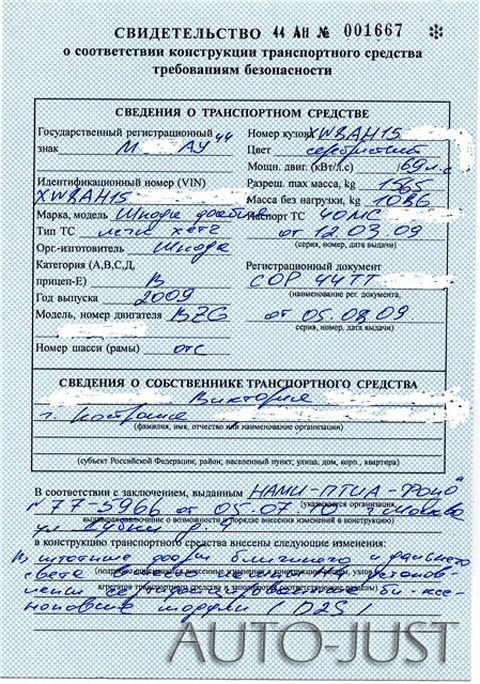 СВИДЕТЕЛЬСТВО 44 АН № 001667
о соответствии конструкции транспортного средства
требованиям безопасности
СВЕДЕНИЯ О ТРАНСПОРТНОМ СРЕДСТВЕ
Государственный регистрационный 44
знак М АУ
Идентификационный номер (VIN)
XW8AH15
Марка, модель Шкода фабия
Тип ТС легк хетч
Орг.-изготовитель Шкода
Категория (A,B,C,D,
прицеп-E) B
Год выпуска 2009
Модель, номер двигателя BZG
Номер шасси (рамы) отс
Номер кузова XW8AH15
Цвет серебристый
Мощн. двиг. (кВт/л.с) 69 л.с
Разреш. max масса, kg 1565
Масса без нагрузки, kg 1086
Паспорт ТС 40МС
от 12.03.09
(серия, номер, дата выдачи)
Регистрационный документ
СОР 44ТТ
(наименование рег. документа,
от 05.08.09
серия, номер, дата выдачи)
СВЕДЕНИЯ О СОБСТВЕННИКЕ ТРАНСПОРТНОГО СРЕДСТВА
Виктория
г. Кострома
(фамилия, имя, отчество или наименование организации)
(субъект Российской Федерации; район; населенный пункт; улица, дом, корп., квартира)
В соответствии с заключением, выданным НАМИ-ПТИА-ФОНД"
(указывается организация,
№77-5966 от 05.07.10 г. Москва
выдавшая заключение о возможности и порядке внесения изменений в конструкцию)
ул.
в конструкцию транспортного средства внесены следующие изменения:
В штатные фары ближнего и дальнего
света
би-ксе-
ноновые модули (D2S)
AUTO-JUST